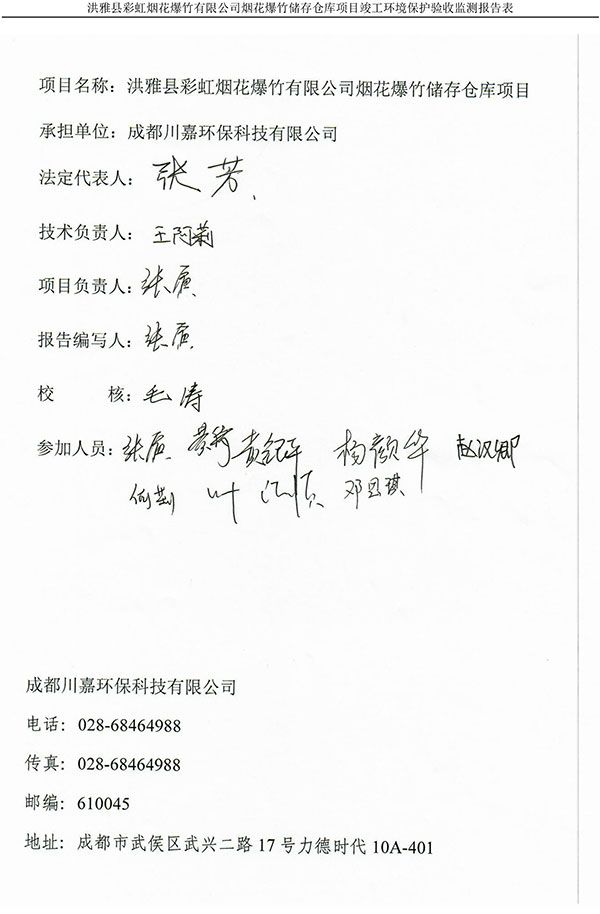 洪雅县彩虹烟花爆竹有限公司烟花爆竹储存仓库项目竣工环境保护验收监测报告表
项目名称：洪雅县彩虹烟花爆竹有限公司烟花爆竹储存仓库项目
承担单位：成都川嘉环保科技有限公司
法定代表人：张芳
技术负责人：王阿莉
项目负责人：张
报告编写人：张
校 核：毛涛
参加人员：张 杨颜华 赵汉卿
何 叶 邓思琪
成都川嘉环保科技有限公司
电话：028-68464988
传真：028-68464988
邮编：610045
地址：成都市武侯区武兴二路 17 号力德时代 10A-401